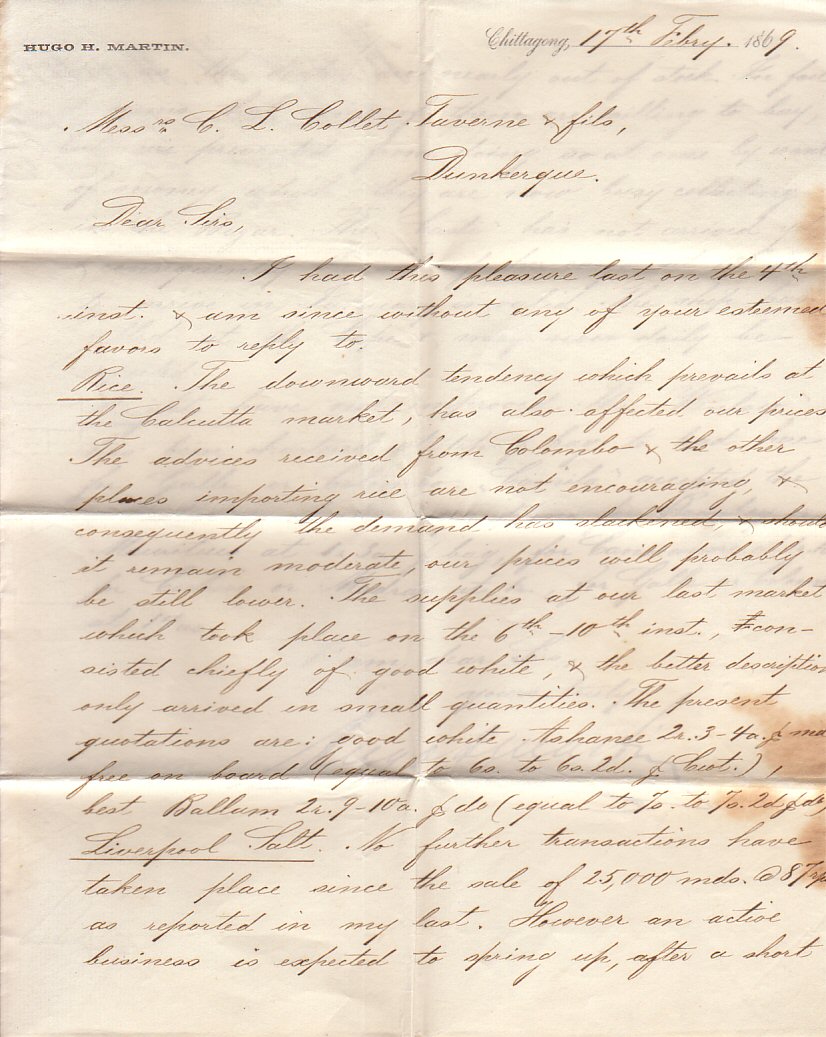 HUGO H. MARTIN.
Chittagong, 17th Febry. 1869.
Messrs C. L. Collet Taverne & fils,
Dunkerque.
Dear Sirs,
I had this pleasure last on the 4th
inst. & am since without any of your esteemed
favors to reply to.
Rice. The downward tendency which prevails at
the Calcutta market, has also affected our prices
The advices received from Colombo & the other
places importing rice are not encouraging, &
consequently the demand has slackened, & should
it remain moderate, our prices will probably
be still lower. The supplies at our last market
which took place on the 6th - 10th inst., con-
sisted chiefly of good white, & the better description
only arrived in small quantities. The present
quotations are: good white Ashanee 2r. 3-4a. p
free on board (equal to 6s. to 6s. 2d. p Cwt.),
best Ballum 2r. 9-10a. p do (equal to 7s. to 7s. 2d p do)
Liverpool Salt. No further transactions have
taken place since the sale of 25,000 mds. @ 87
as reported in my last. However an active
business is expected to spring up, after a short